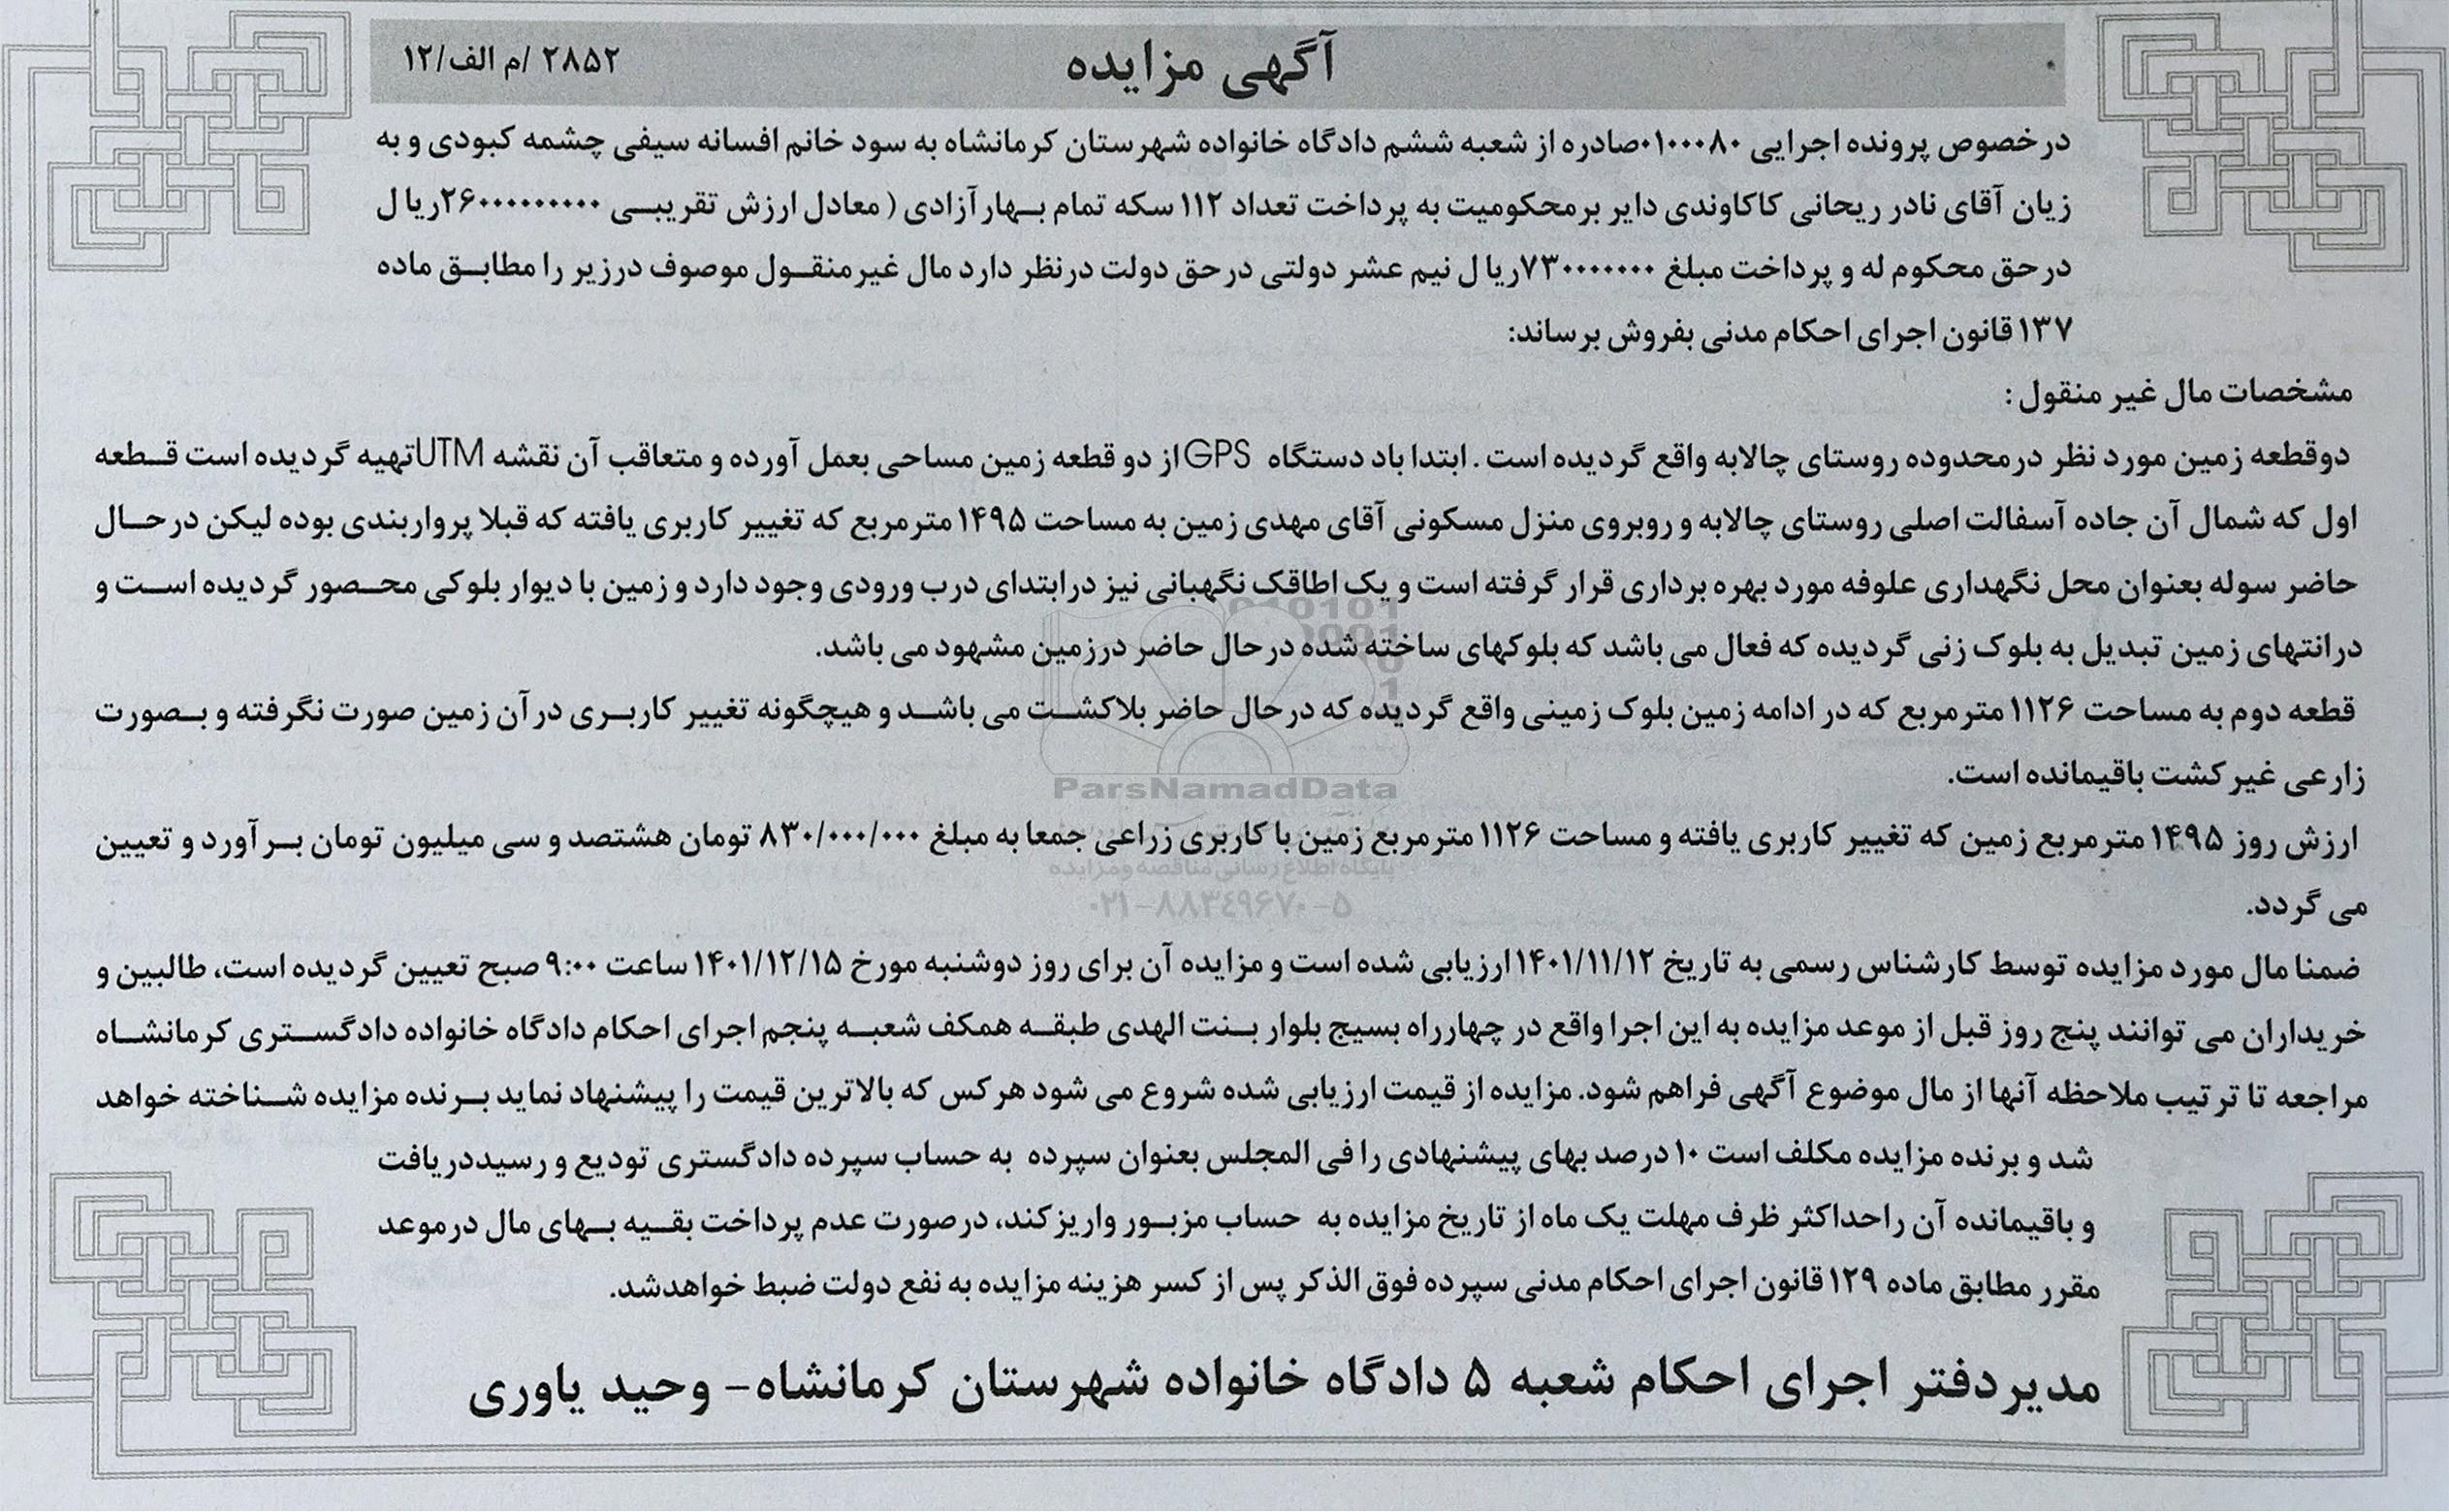 آگهی مزایده
۲۸۵۲ /م الف/۱۲
درخصوص پرونده اجرایی ۰۱۰۰۰۸۰صادره از شعبه ششم دادگاه خانواده شهرستان کرمانشاه به سود خانم افسانه سیفی چشمه کبودی و به
زیان آقای نادر ریحانی کاکاوندی دایر برمحکومیت به پرداخت تعداد ۱۱۲ سکه تمام بهار آزادی ( معادل ارزش تقریبی ۲۶۰۰۰۰۰۰۰۰۰۰ریال
درحق محکوم له و پرداخت مبلغ ۷۳۰۰۰۰۰۰۰ریال نیم عشر دولتی درحق دولت درنظر دارد مال غیرمنقول موصوف درزیر را مطابق ماده
۱۳۷ قانون اجرای احکام مدنی بفروش برساند:
مشخصات مال غیر منقول :
دوقطعه زمین مورد نظر درمحدوده روستای چالابه واقع گردیده است . ابتدا باد دستگاه GPS از دو قطعه زمین مساحی بعمل آورده و متعاقب آن نقشه UTMتهیه گردیده است قطعه
اول که شمال آن جاده آسفالت اصلی روستای چالابه و روبروی منزل مسکونی آقای مهدی زمین به مساحت ۱۴۹۵ مترمربع که تغییر کاربری یافته که قبلا پرواربندی بوده لیکن درحال
حاضر سوله بعنوان محل نگهداری علوفه مورد بهره برداری قرار گرفته است و یک اطاقک نگهبانی نیز درابتدای درب ورودی وجود دارد و زمین با دیوار بلوکی محصور گردیده است و
درانتهای زمین تبدیل به بلوک زنی گردیده که فعال می باشد که بلوکهای ساخته شده درحال حاضر درزمین مشهود می باشد.
قطعه دوم به مساحت ۱۱۲۶ مترمربع که در ادامه زمین بلوک زمینی واقع گردیده که درحال حاضر بلاکشت می باشد و هیچگونه تغییر کاربری درآن زمین صورت نگرفته و بصورت
زارعی غیرکشت باقیمانده است.
ارزش روز ۱۴۹۵ مترمربع زمین که تغییر کاربری یافته و مساحت ۱۱۲۶ مترمربع زمین با کاربری زراعی جمعا به مبلغ ۸۳۰/۰۰۰/۰۰۰ تومان هشتصد و سی میلیون تومان برآورد و تعیین
می گردد.
ضمنا مال مورد مزایده توسط کارشناس رسمی به تاریخ ۱۴۰۱/۱۱/۱۲ارزیابی شده است و مزایده آن برای روز دوشنبه مورخ ۱۴۰۱/۱۲/۱۵ ساعت ۹:۰۰ صبح تعیین گردیده است، طالبین و
خریداران می توانند پنج روز قبل از موعد مزایده به این اجرا واقع در چهارراه بسیج بلوار بنت الهدی طبقه همکف شعبه پنجم اجرای احکام دادگاه خانواده دادگستری کرمانشاه
مراجعه تا ترتیب ملاحظه آنها از مال موضوع آگهی فراهم شود. مزایده از قیمت ارزیابی شده شروع می شود هرکس که بالاترین قیمت را پیشنهاد نماید برنده مزایده شناخته خواهد
شد و برنده مزایده مکلف است ۱۰ درصد بهای پیشنهادی را فی المجلس بعنوان سپرده به حساب سپرده دادگستری تودیع و رسیددریافت
و باقیمانده آن راحداکثر ظرف مهلت یک ماه از تاریخ مزایده به حساب مزبور واریزکند، درصورت عدم پرداخت بقیه بهای مال درموعد
مقرر مطابق ماده ۱۲۹ قانون اجرای احکام مدنی سپرده فوق الذکر پس از کسر هزینه مزایده به نفع دولت ضبط خواهدشد.
مدیردفتر اجرای احکام شعبه ۵ دادگاه خانواده شهرستان کرمانشاه- وحید یاوری
ParsNamadData
پایگاه اطلاع رسانی مناقصه و مزایده
۰۲۱-۸۸۳۴۹۶۷۰-۵